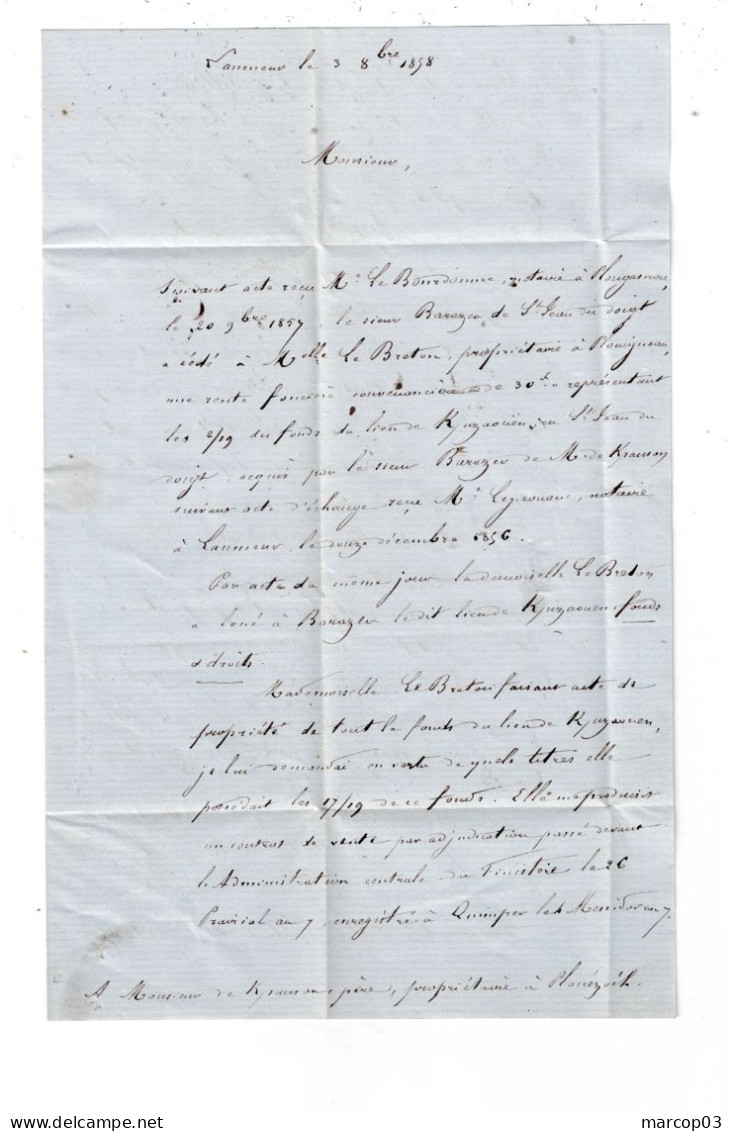 Lanmeur le 3 8bre 1858
Monsieur,
Suivant acte reçu Me Le Bourdonnec, notaire à Plougasnou,
le 20 9bre 1857, le sieur Barazer de St Jean du doigt
a cédé à Melle Le Breton, propriétaire à Plouigneau,
une rente foncière convenancière de 30f représentant
les 2/19 du fonds du lieu de Kjuzaouën, en St Jean du
doigt, acquis par le sieur Barazer de Mr de Krauson
suivant acte d'échange reçu Me notaire
à Lanmeur, le douze décembre 1856.
Par acte du même jour la demoiselle Le Breton
a loué à Barazer le dit lieu de Kjuzaouen fonds
& droits.
Mademoiselle Le Breton faisant acte de
propriété de tout le fonds du lieu de Kjuzaouen,
je lui demandai en vertu de quels titres elle
possedait les 17/19 de ce fonds. Elle me produisit
un contrat de vente par adjudication passé devant
l'Administration centrale du Finistère le 26
Prairial an 7, enregistré à Quimper le 4 Messidor an 7.
A Monsieur de Krauson, père, propriétaire à Plouézoch.
marcop03